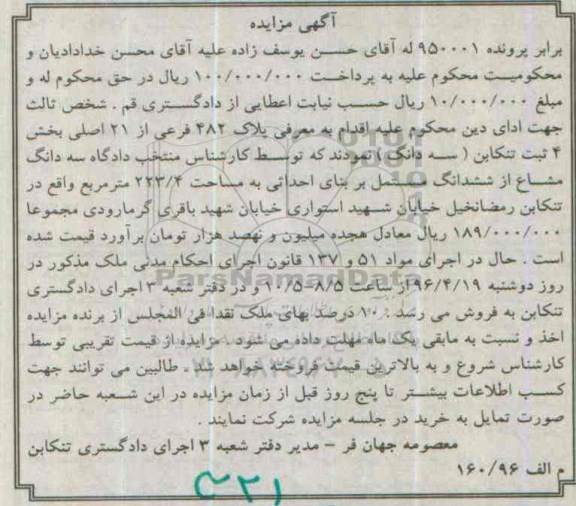 آگهی مزایده
برابر پرونده ۹۵۰۰۰۱ له آقای حسن یوسف زاده علیه آقای محسن خدادادیان و
محکومیت محکوم علیه به پرداخت ۱۰۰/۰۰۰/۰۰۰ ریال در حق محکوم له و
مبلغ ۱۰/۰۰۰/۰۰۰ ریال حسب نیابت اعطایی از دادگستری قم . شخص ثالث
جهت ادای دین محکوم علیه اقدام به معرفی پلاک ۴۸۲ فرعی از ۲۱ اصلی بخش
۴ ثبت تنکابن ( سه دانگ ) نمودند که توسط کارشناس منتخب دادگاه سه دانگ
مشاع از ششدانگ مشتمل بر بنای احداثی به مساحت ۲۲۳/۴ مترمربع واقع در
تنکابن رمضانخیل خیابان شهید استواری خیابان شهید باقری گرمارودی مجموعا
۱۸۹/۰۰۰/۰۰۰ ریال معادل هجده میلیون و نهصد هزار تومان برآورد قیمت شده
است . حال در اجرای مواد ۵۱ و ۱۳۷ قانون اجرای احکام مدنی ملک مذکور در
روز دوشنبه ۹۶/۴/۱۹ از ساعت ۸/۵-۹/۵ و در دفتر شعبه ۳ اجرای دادگستری
تنکابن به فروش می رسد . ۱۰ درصد بهای ملک نقدا فی المجلس از برنده مزایده
اخذ و نسبت به مابقی یک ماه مهلت داده می شود . مزایده از قیمت تقریبی توسط
کارشناس شروع و به بالاترین قیمت فروخته خواهد شد . طالبین می توانند جهت
کسب اطلاعات بیشتر تا پنج روز قبل از زمان مزایده در این شعبه حاضر در
صورت تمایل به خرید در جلسه مزایده شرکت نمایند .
معصومه جهان فر – مدیر دفتر شعبه ۳ اجرای دادگستری تنکابن
م الف ۱۶۰/۹۶
ParsNamadData